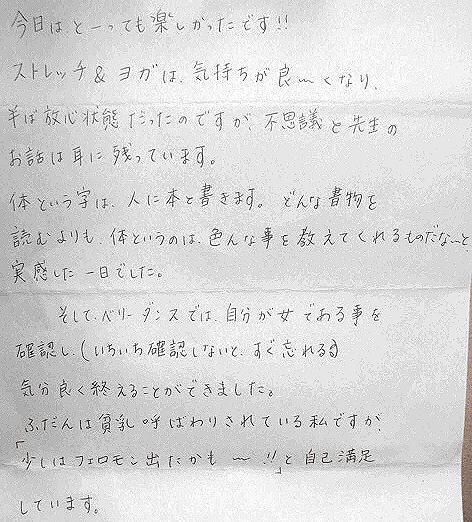 今日はとーっても楽しかったです!!
ストレッチ&ヨガは、気持ちが良〜くなり、
半ば放心状態だったのですが、不思議と先生の
お話は耳に残っています。
体という字は、人に本と書きます。どんな書物を
読むよりも、体というのは、色んな事を教えてくれるものだな〜と、
実感した一日でした。
そして、ベリーダンスでは、自分が女である事を
確認し、(いちいち確認しないと、すぐ忘れる)
気分良く終えることができました。
ふだんは貧乳呼ばわりされている私ですが、
「少しはフェロモン出たかも〜!!」と自己満足
しています。